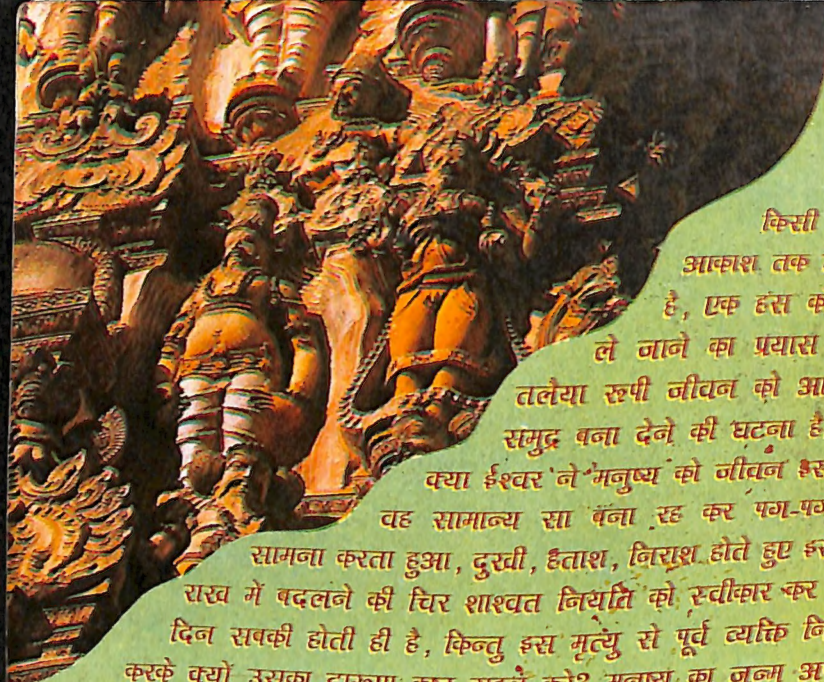 किसी
आकाश तक
है, एक हंस क
ले जाने का प्रयास
तलैया रूपी जीवन को अ
समुद्र बना देने की घटना है
क्या ईश्वर ने मनुष्य को जीवन इस
वह सामान्य सा बना रह कर पग-पग
सामना करता हुआ, दुखी, हताश, निराश होते हुए इस
राख में बदलने की चिर शाश्वत नियति को स्वीकार कर
दिन सबकी होती ही है, किन्तु इस मृत्यु से पूर्व व्यक्ति नि
करके क्यों उसका दारूण कष्ट मनुष्य का जन्म अ